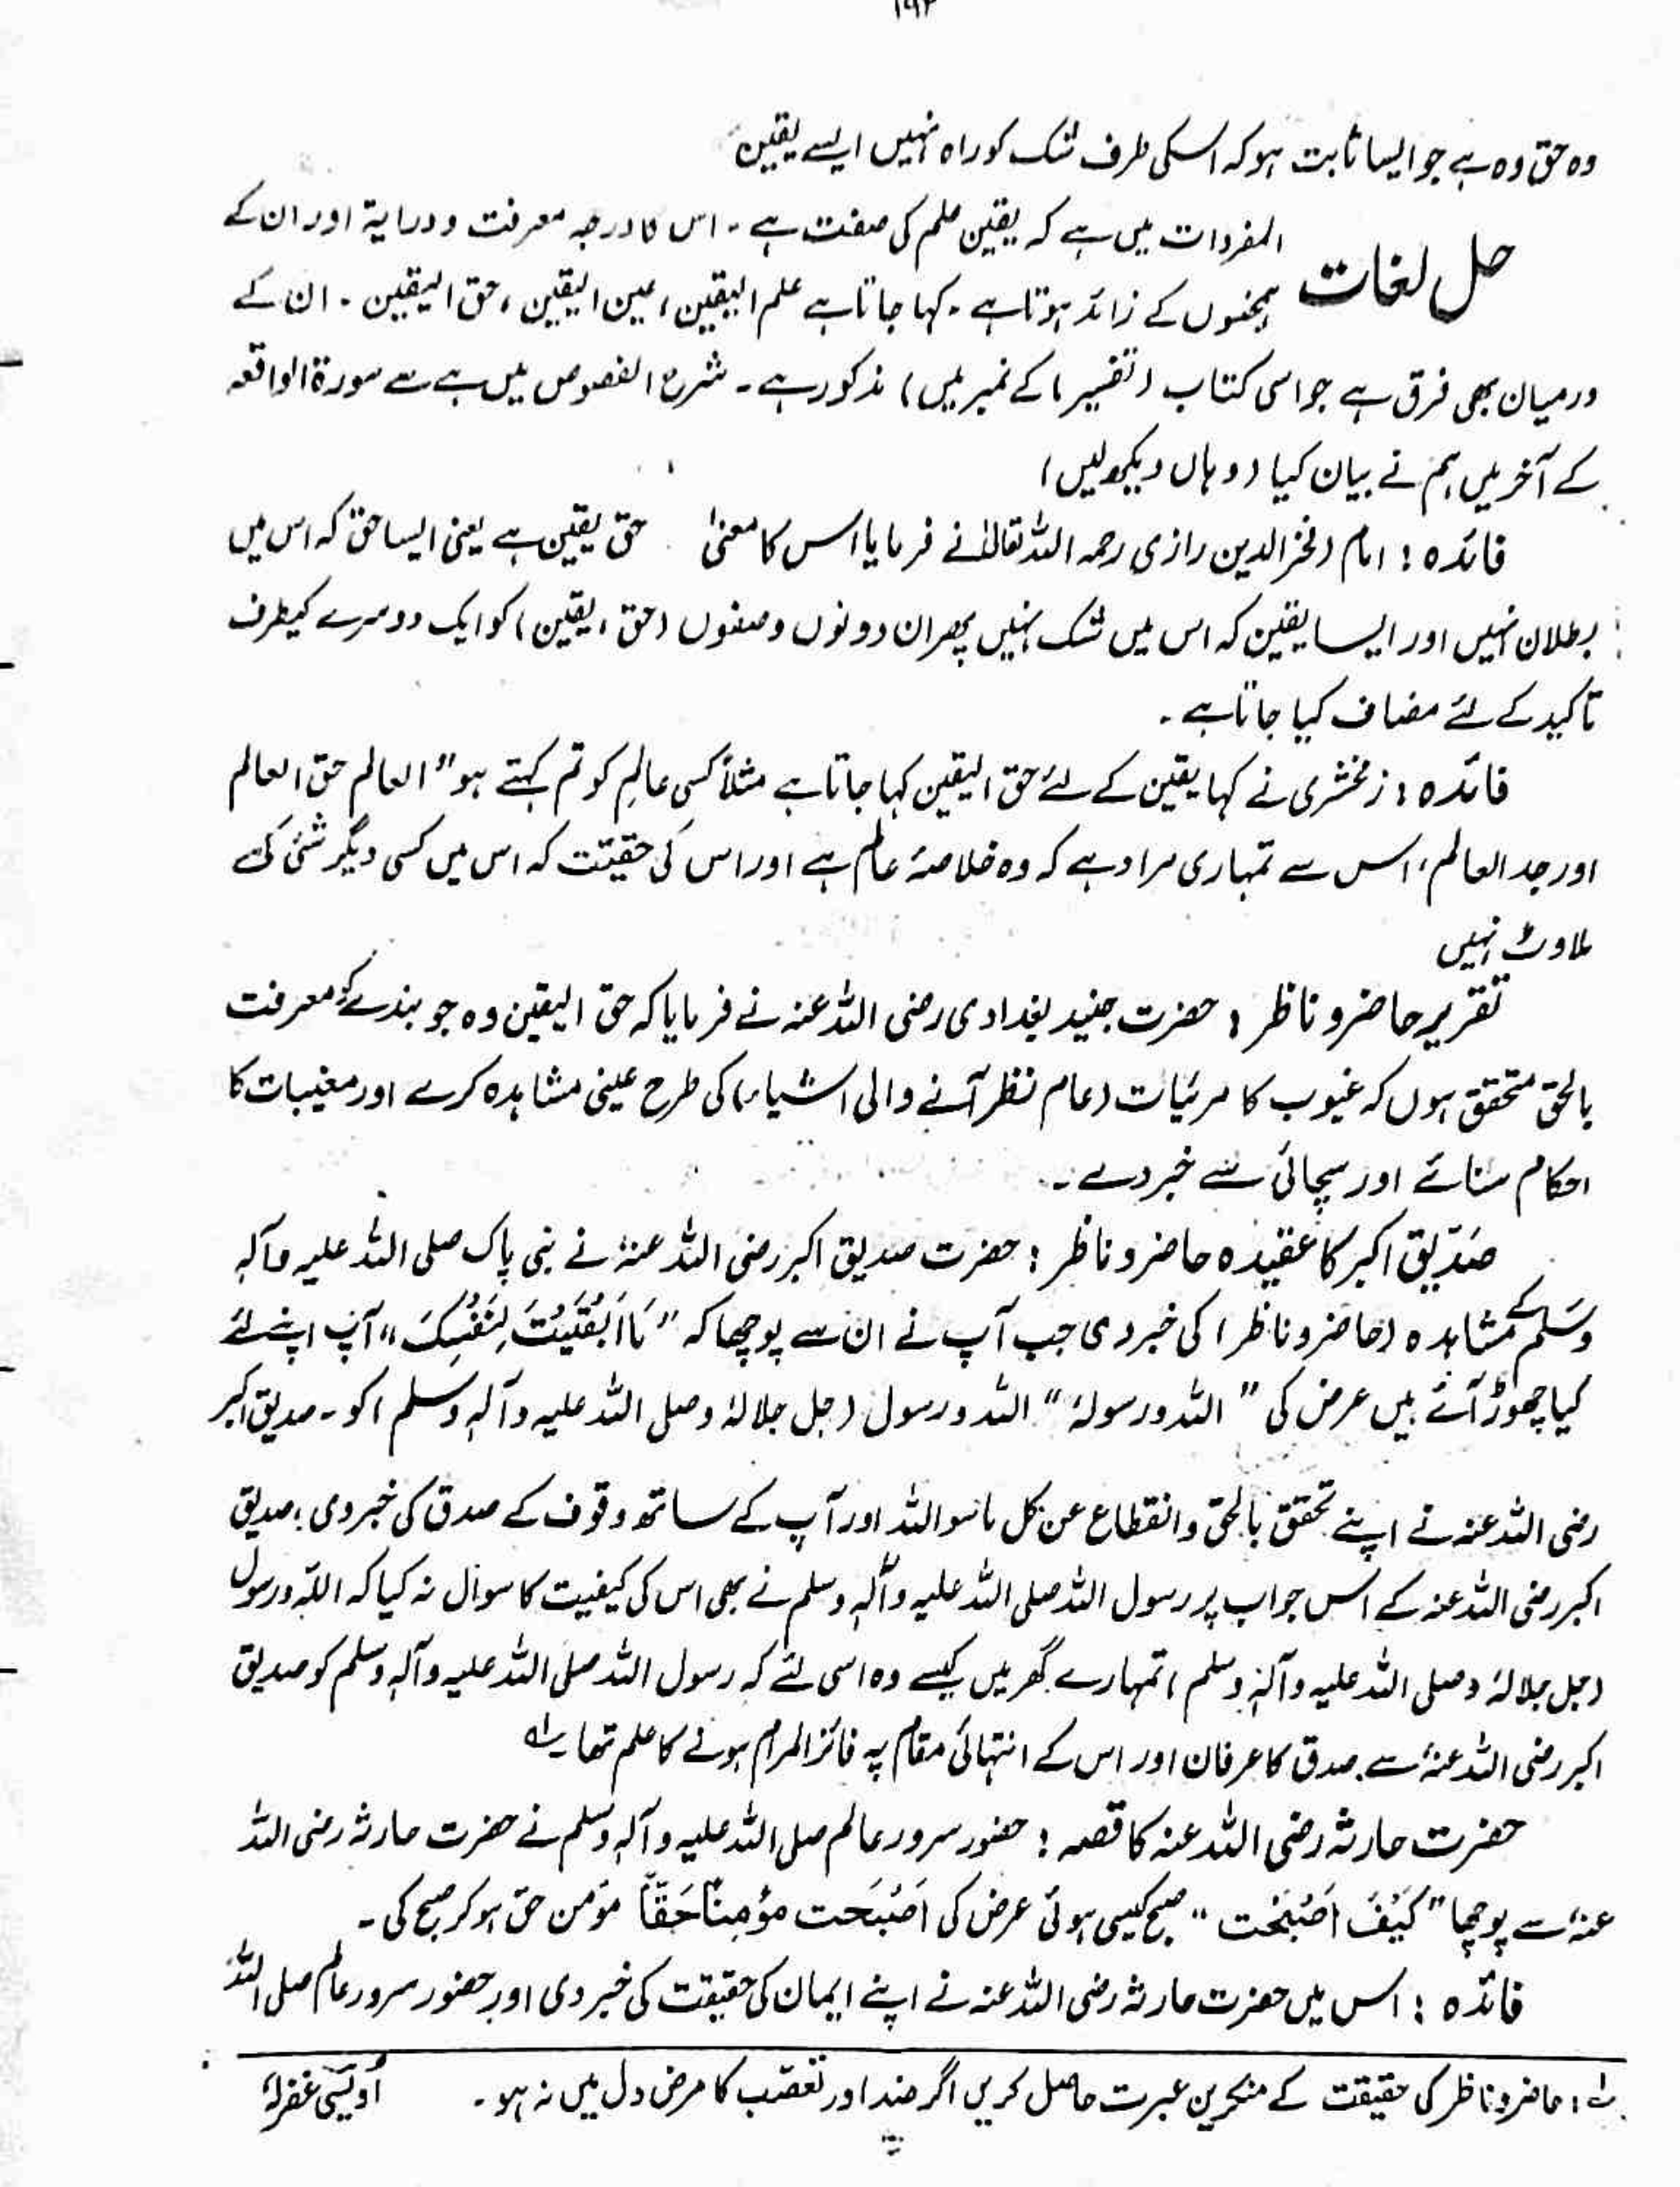 ۱۹۲
وہ حق وہ ہے جو ایسا ثابت ہو کہ اسکی طرف شک کو راہ نہیں ایسے یقین
حل لغات
المفردات میں ہے کہ یقین علم کی صفت ہے ۔ اس کا درجہ معرفت و درایۃ اور ان کے
ہمجنسوں کے زائد ہوتا ہے ۔ کہا جاتا ہے علم الیقین ، عین الیقین ، حق الیقین ۔ ان کے
درمیان بھی فرق ہے جو اسی کتاب (تفسیر) کے نمبر میں) مذکور ہے ۔ شرح الفصوص میں ہے سے سورۃ الواقعہ
کے آخر میں ہم نے بیان کیا (وہاں دیکھ لیں)
فائدہ : امام (فخر الدین رازی رحمہ اللہ تعالیٰ نے فرمایا اس کا معنیٰ حق یقین ہے یعنی ایسا حق کہ اس میں
بطلان نہیں اور ایسا یقین کہ اس میں شک نہیں پھر ان دونوں وصفوں (حق ، یقین) کو ایک دوسرے کیطرف
تاکید کے لئے مضاف کیا جاتا ہے ۔
فائدہ : زمخشری نے کہا یقین کے لئے حق الیقین کہا جاتا ہے مثلاً کسی عالِم کو تم کہتے ہو " العالم حق العالم
اور جد العالم ، اس سے تمہاری مراد ہے کہ وہ خلاصۂ عالم ہے اور اس کی حقیقت کہ اس میں کسی دیگر شئی کی
ملاوٹ نہیں
تقریر حاضر و ناظر : حضرت جنید بغدادی رضی اللہ عنہ نے فرمایا کہ حق الیقین وہ جو بندے کو معرفت
بالحق متحقق ہوں کہ غیوب کا مرئیات (عام نظر آنے والی اشیاء) کی طرح عینی مشاہدہ کرے اور مغیبات کا
احکام سنائے اور سچائی سے خبر دے ۔
صدّیق اکبر کا عقیدہ حاضر و ناظر : حضرت صدیق اکبر رضی اللہ عنہٗ نے نبی پاک صلی اللہ علیہ وآلہ
وسلم کے مشاہدہ (حاضر و ناظر) کی خبر دی جب آپ نے ان سے پوچھا کہ " مَا اَبْقَیْتَ لِنَفْسِکَ " آپ اپنے لئے
کیا چھوڑ آئے ہیں عرض کی " اللہ و رسولہٗ " اللہ و رسول (جل جلالہٗ و صلی اللہ علیہ وآلہٖ وسلم) کو ۔ صدیق اکبر
رضی اللہ عنہ نے اپنے تحقق بالحق و انقطاع عن کل ماسوا اللہ اور آپ کے ساتھ وقوف کے صدق کی خبر دی ؛ صدیق
اکبر رضی اللہ عنہ کے اس جواب پر رسول اللہ صلی اللہ علیہ وآلہٖ وسلم نے بھی اس کی کیفیت کا سوال نہ کیا کہ اللہ و رسول
(جل جلالہٗ و صلی اللہ علیہ وآلہٖ وسلم) تمہارے گھر میں کیسے وہ اسی لئے کہ رسول اللہ صلی اللہ علیہ وآلہٖ وسلم کو صدیق
اکبر رضی اللہ عنہٗ سے صدق کا عرفان اور اس کے انتہائی مقام پہ فائز المرام ہونے کا علم تھا ۔ لہ
حضرت حارثہ رضی اللہ عنہ کا قصہ : حضور سرور عالم صلی اللہ علیہ وآلہٖ وسلم نے حضرت حارثہ رضی اللہ
عنہٗ سے پوچھا " کَیْفَ اَصْبَحْت " صبح کیسی ہوئی عرض کی اَصْبَحت مؤمِناً حَقّاً مؤمن حق ہو کر صبح کی ۔
فائدہ : اس میں حضرت حارثہ رضی اللہ عنہ نے اپنے ایمان کی حقیقت کی خبر دی اور حضور سرور عالم صلی اللہ
لہ : حاضر و ناظر کی حقیقت کے منکرین عبرت حاصل کریں اگر ضد اور تعصب کا مرض دل میں نہ ہو ۔ اُویسی غفرلہٗ